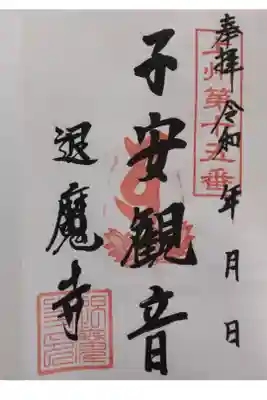 奉拝 令和 年 月 日
上州第十五番
子安観音
退魔寺